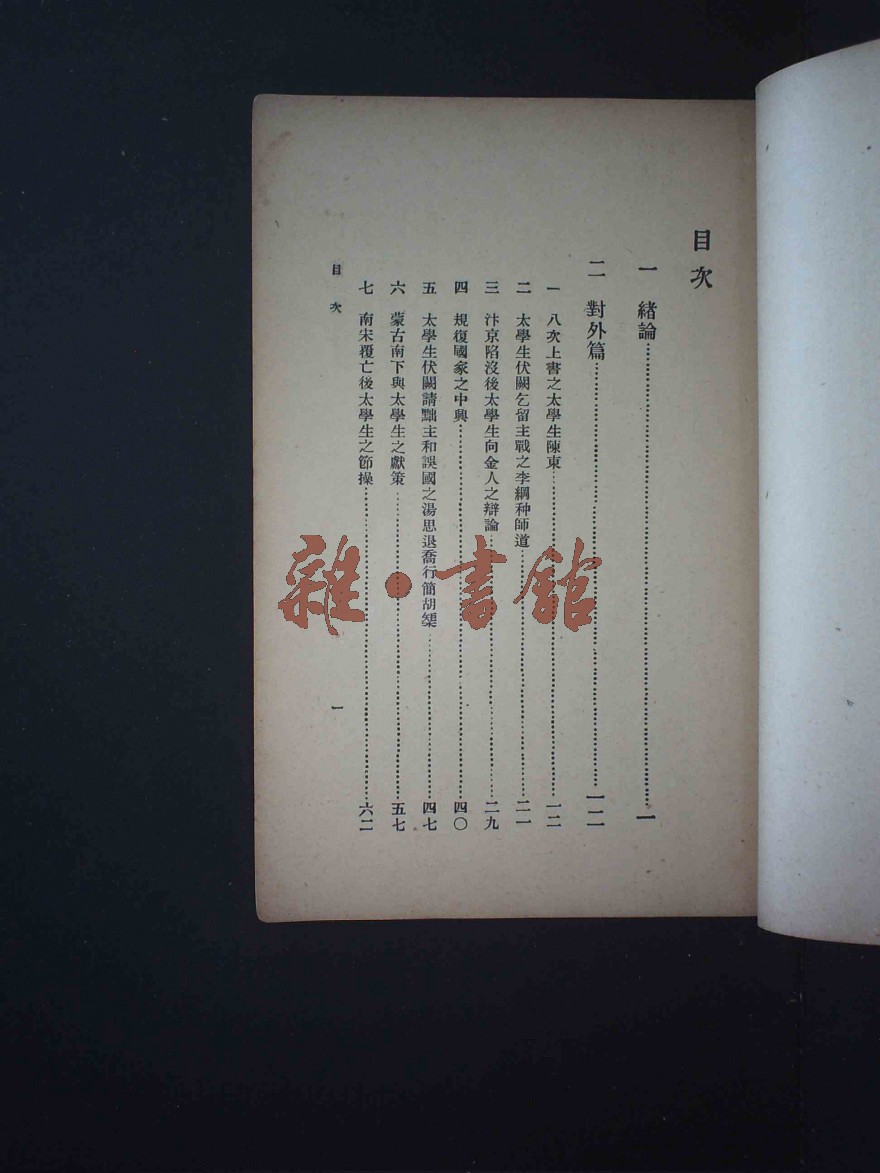 目次
一 緒論……一
二 對外篇……一二
一 八次上書之太學生陳東……一二
二 太學生伏闕乞留主戰之李綱种師道……二一
三 汴京陷沒後太學生向金人之辯論……二九
四 規復國家之中興……四〇
五 太學生伏闕請黜主和誤國之湯思退喬行簡胡榘……四七
六 蒙古南下與太學生之獻策……五七
七 南宋覆亡後太學生之節操……六二
目次 一
雜·書館